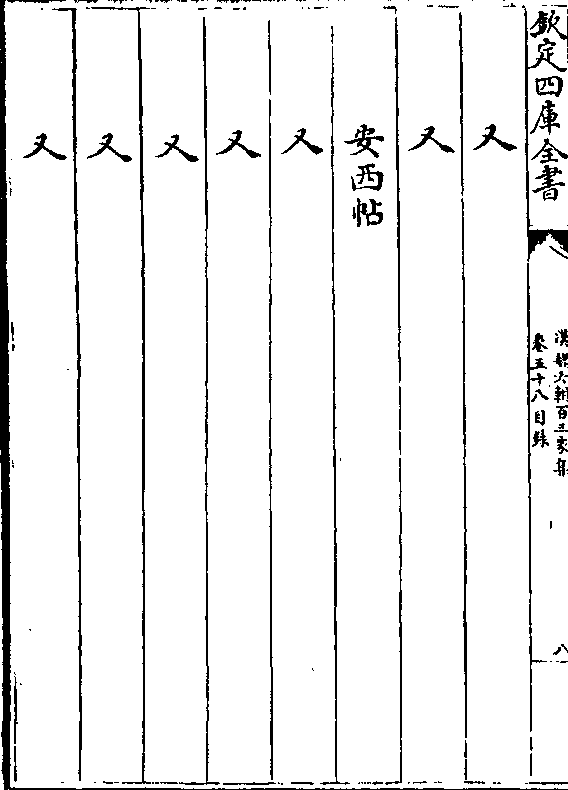 欽定四庫全書
漢魏六朝百三家集
卷五十八目錄
八
又
又
安西帖
又
又
又
又
又